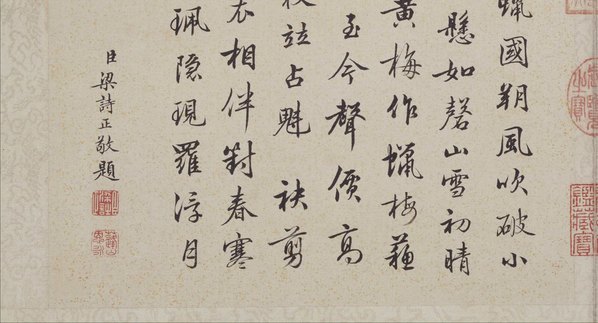 國朔風吹破小
懸如磬山雪初晴
黃梅作蠟梅蘓
至今聲價高
竝占魁 袂剪
衣相伴對春寒
珮隱現羅浮月
臣梁詩正敬題
鑑藏寶